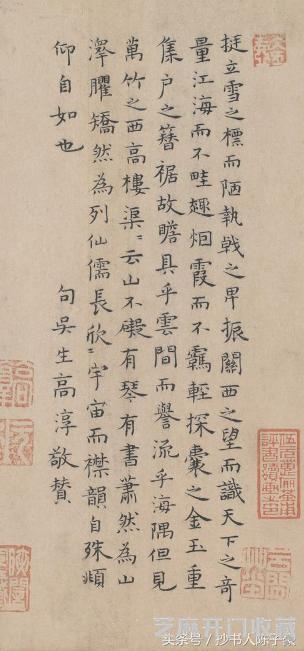 挺立雪之標而陋執戟之卑振關西之望而識天下之奇
量江海而不畦趣烟霞而不羈輕探囊之金玉重
集户之簪裾故瞻具乎雲間而譽流乎海隅但見
萬竹之西高樓渠〻云山不礙有琴有書蕭然為山
澤臞矯然為列仙儒長欣〻宇宙而襟韻自殊頫
仰自如也
句吳生高淳敬贊
芝麻开门收藏
头条号/抄书人陈子